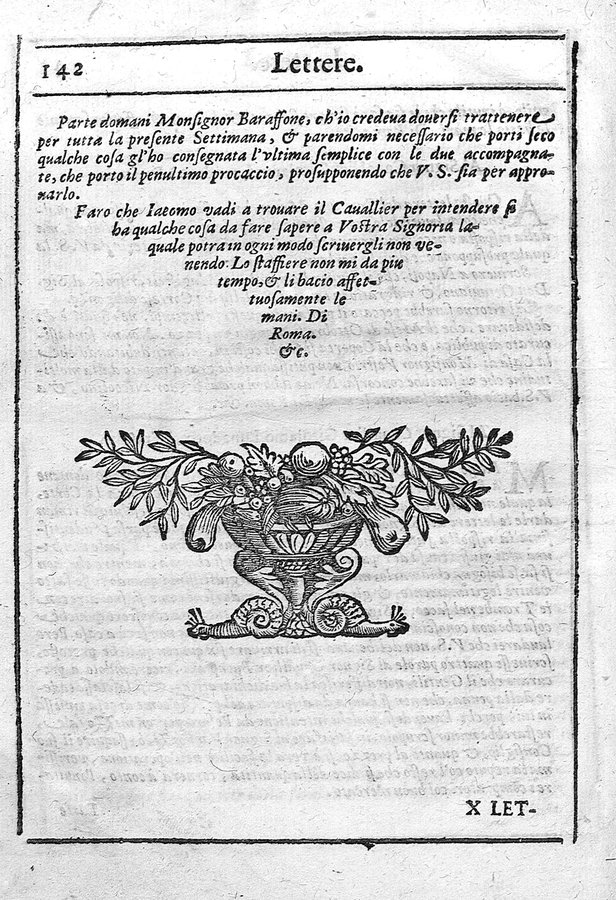 142 Lettere.
Parte domani Monsignor Baraffone, ch'io credeua douersi trattenere
per tutta la presente Settimana, & parendomi necessario che porti seco
qualche cosa gl'ho consegnata l'vltima semplice con le due accompagna-
te, che porto il penultimo procaccio, prosupponendo che V. S. sia per appro-
uarlo.
Faro che Iacomo vadi a trouare il Cauallier per intendere se
ha qualche cosa da fare sapere a Vostra Signoria la-
quale potra in ogni modo scriuergli non ve-
nendo. Lo staffiere non mi da piu
tempo, & li bacio affet-
tuosamente le
mani. Di
Roma.
&c.
X LET-